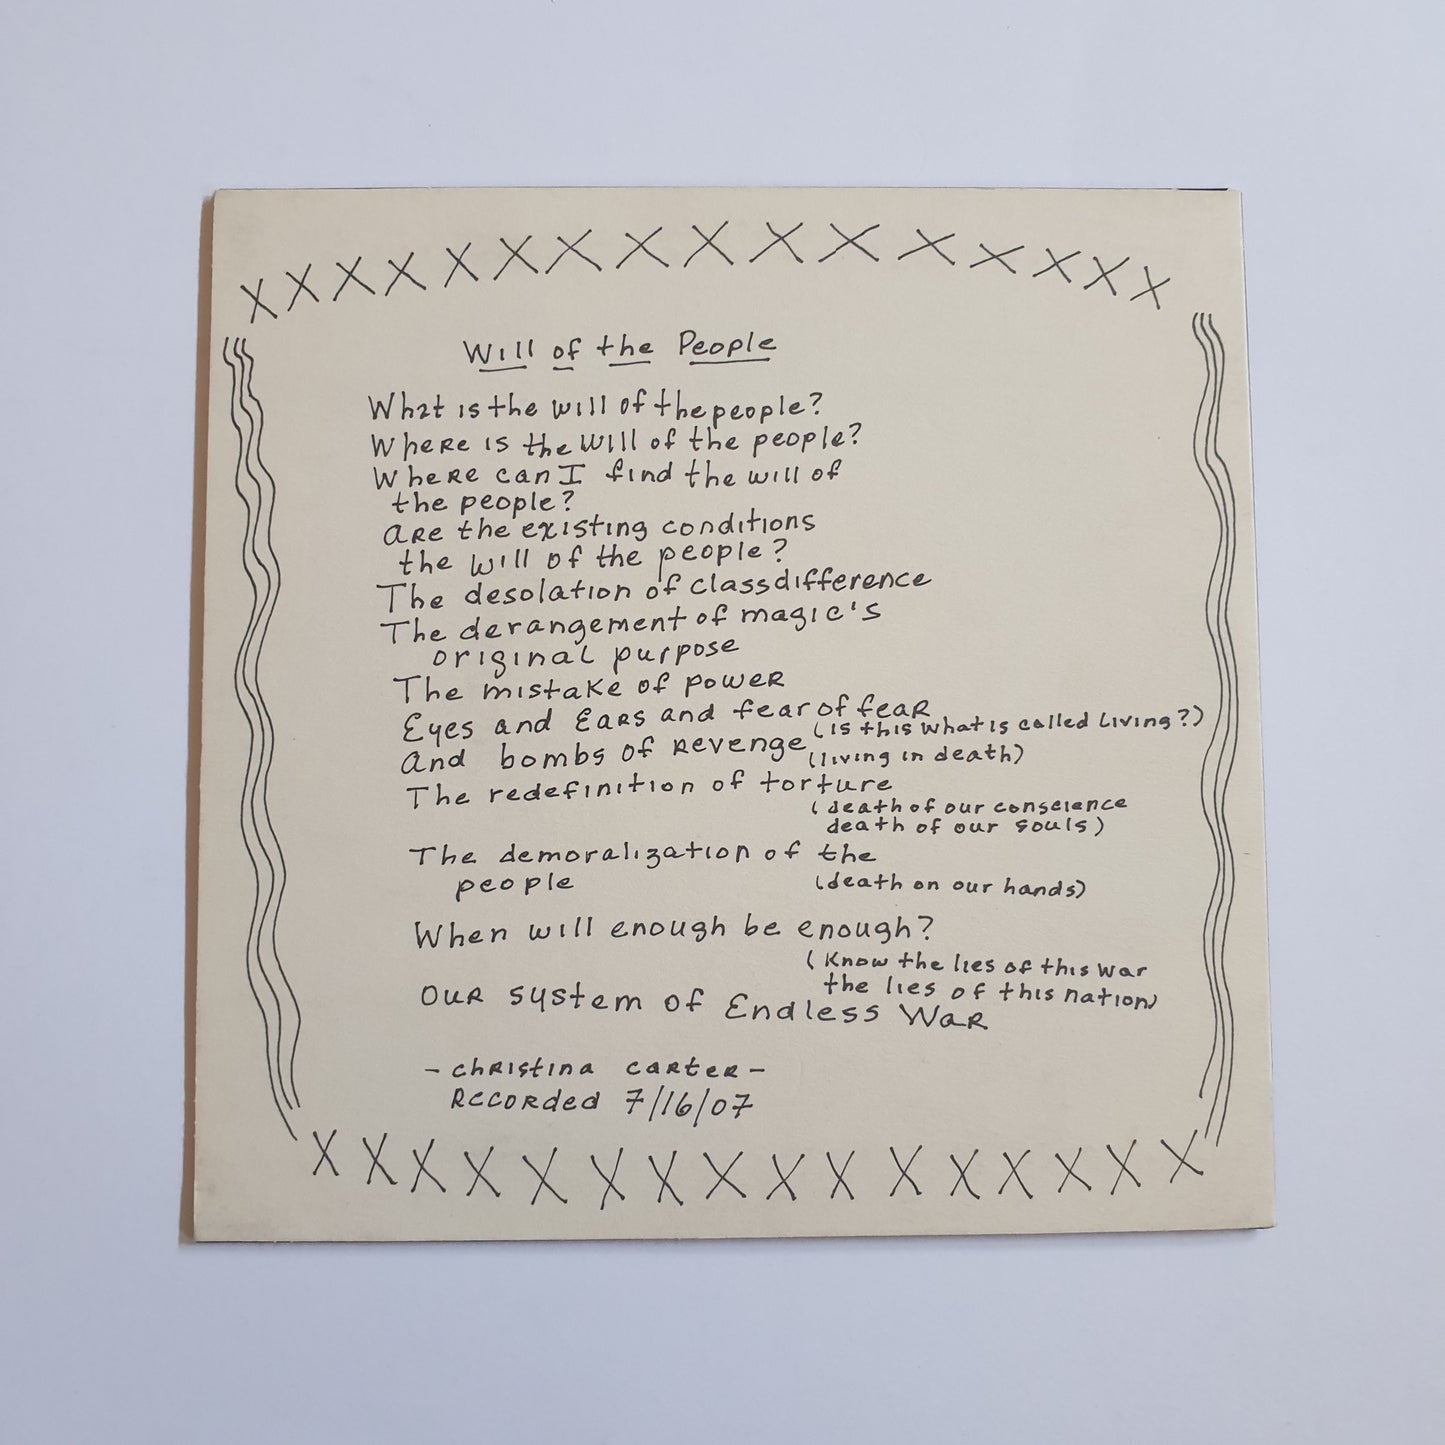 Will of the People
What is the will of the people?
Where is the will of the people?
Where can I find the will of
the people?
Are the existing conditions
the will of the people?
The desolation of class difference
The derangement of magic's
original purpose
The mistake of power
Eyes and Ears and fear of fear
(is this what is called living?)
And bombs of revenge
(living in death)
The redefinition of torture
(death of our conscience
death of our souls)
The demoralization of the
people (death on our hands)
When will enough be enough?
(Know the lies of this war
the lies of this nation)
Our system of Endless War
- Christina Carter -
Recorded 7/16/07